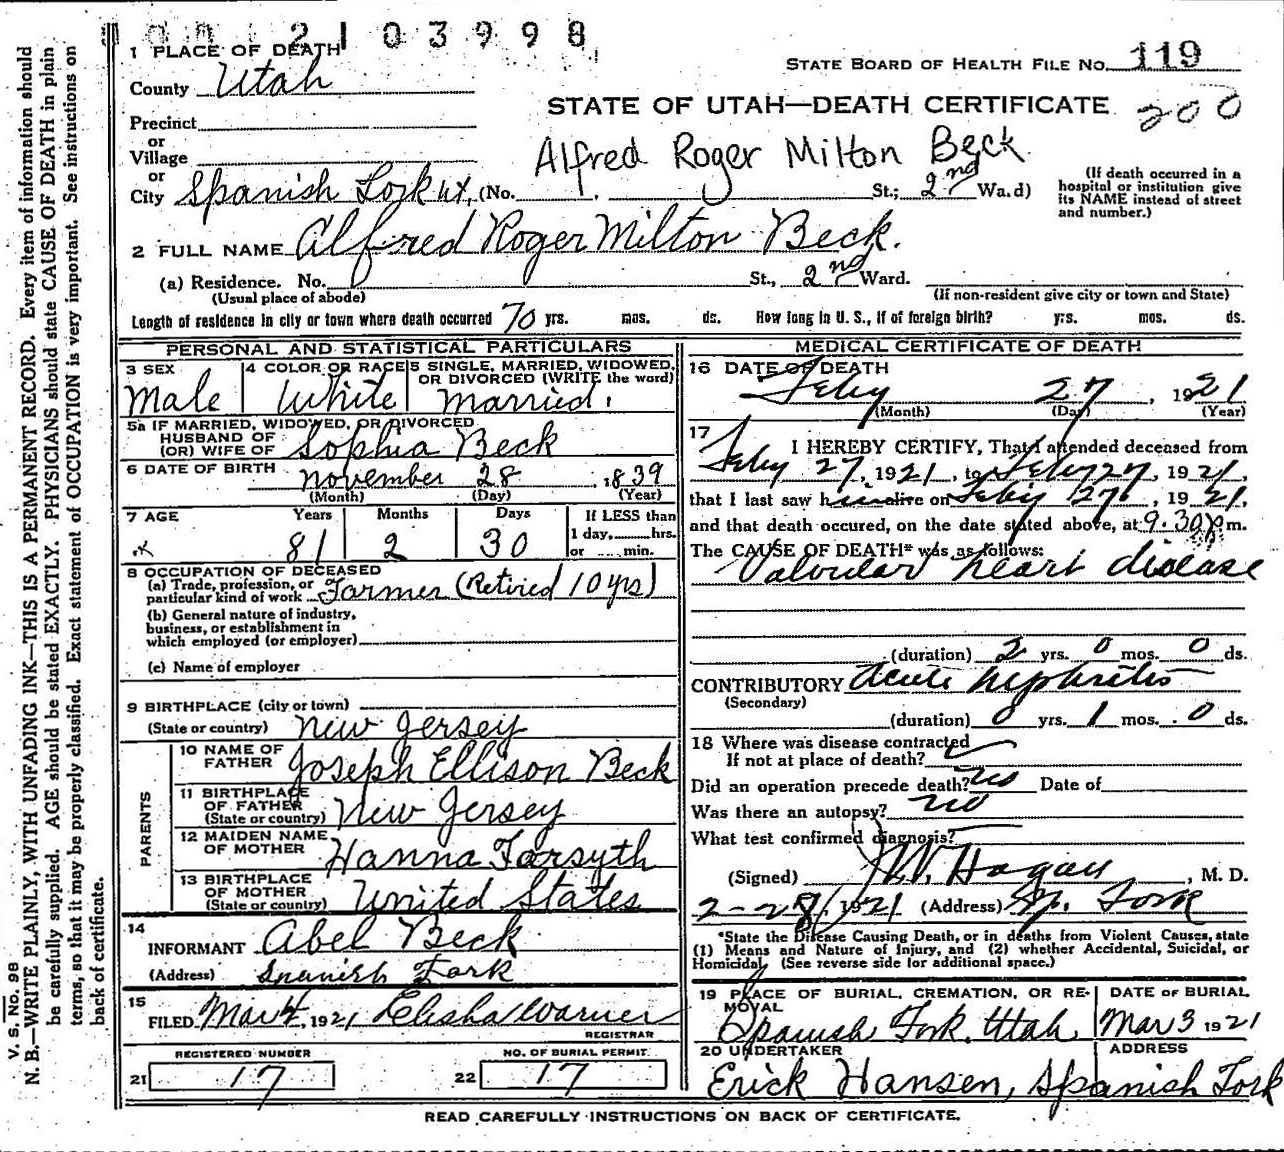 2103998
1 PLACE OF DEATH
County Utah
STATE BOARD OF HEALTH FILE NO. 119
STATE OF UTAH—DEATH CERTIFICATE 200
Precinct
or
Village
Alfred Roger Milton Beck
or
City Spanish Fork ut. (No. St.; 2nd Wa.d)
(If death occurred in a hospital or institution give its NAME instead of street and number.)
2 FULL NAME Alfred Roger Milton Beck.
(a) Residence. No. St., 2nd Ward.
(Usual place of abode)
(If non-resident give city or town and State)
Length of residence in city or town where death occurred 70 yrs. mos. ds. How long in U. S., if of foreign birth? yrs. mos. ds.
PERSONAL AND STATISTICAL PARTICULARS
3 SEX Male
4 COLOR OR RACE White
5 SINGLE, MARRIED, WIDOWED, OR DIVORCED (WRITE the word) Married.
5a IF MARRIED, WIDOWED, OR DIVORCED
HUSBAND OF
(OR) WIFE OF Sophia Beck
6 DATE OF BIRTH November 28 1839
(Month) (Day) (Year)
7 AGE Years Months Days If LESS than
81 2 30 1 day, hrs.
or min.
8 OCCUPATION OF DECEASED
(a) Trade, profession, or
particular kind of work Farmer (Retired 10 yrs)
(b) General nature of industry,
business, or establishment in
which employed (or employer)
(c) Name of employer
9 BIRTHPLACE (city or town)
(State or country) New Jersey
PARENTS
10 NAME OF FATHER Joseph Ellison Beck
11 BIRTHPLACE OF FATHER (State or country) New Jersey
12 MAIDEN NAME OF MOTHER Hanna Farsyth
13 BIRTHPLACE OF MOTHER (State or country) United States
14
INFORMANT Abel Beck
(Address) Spanish Fork
15
FILED Mar 4, 1921 Elisha Warner
REGISTRAR
REGISTERED NUMBER
21 17
NO. OF BURIAL PERMIT
22 17
MEDICAL CERTIFICATE OF DEATH
16 DATE OF DEATH
Feby 27, 1921
(Month) (Day) (Year)
17
I HEREBY CERTIFY, That I attended deceased from
Feby 27, 1921, to Feby 27, 1921,
that I last saw him alive on Feby 27, 1921,
and that death occured, on the date stated above, at 9.30 p m.
The CAUSE OF DEATH* was as follows:
Valvular heart disease
(duration) 2 yrs. 0 mos. 0 ds.
CONTRIBUTORY Acute nephritis
(Secondary)
(duration) 0 yrs. 1 mos. 0 ds.
18 Where was disease contracted
If not at place of death?
Did an operation precede death? no Date of
Was there an autopsy? no
What test confirmed diagnosis?
(Signed) J.W. Hagan, M. D.
2-28, 1921 (Address) Sp. Fork
*State the Disease Causing Death, or in deaths from Violent Causes, state
(1) Means and Nature of Injury, and (2) whether Accidental, Suicidal, or
Homicidal. (See reverse side for additional space.)
19 PLACE OF BURIAL, CREMATION, OR REMOVAL
Spanish Fork. Utah
DATE OF BURIAL
Mar 3 1921
20 UNDERTAKER ADDRESS
Erick Hansen, Spanish Fork
READ CAREFULLY INSTRUCTIONS ON BACK OF CERTIFICATE.
V. S. NO. 98
N. B.—WRITE PLAINLY, WITH UNFADING INK—THIS IS A PERMANENT RECORD. Every item of information should
be carefully supplied. AGE should be stated EXACTLY. PHYSICIANS should state CAUSE OF DEATH in plain
terms, so that it may be properly classified. Exact statement of OCCUPATION is very important. See instructions on
back of certificate.